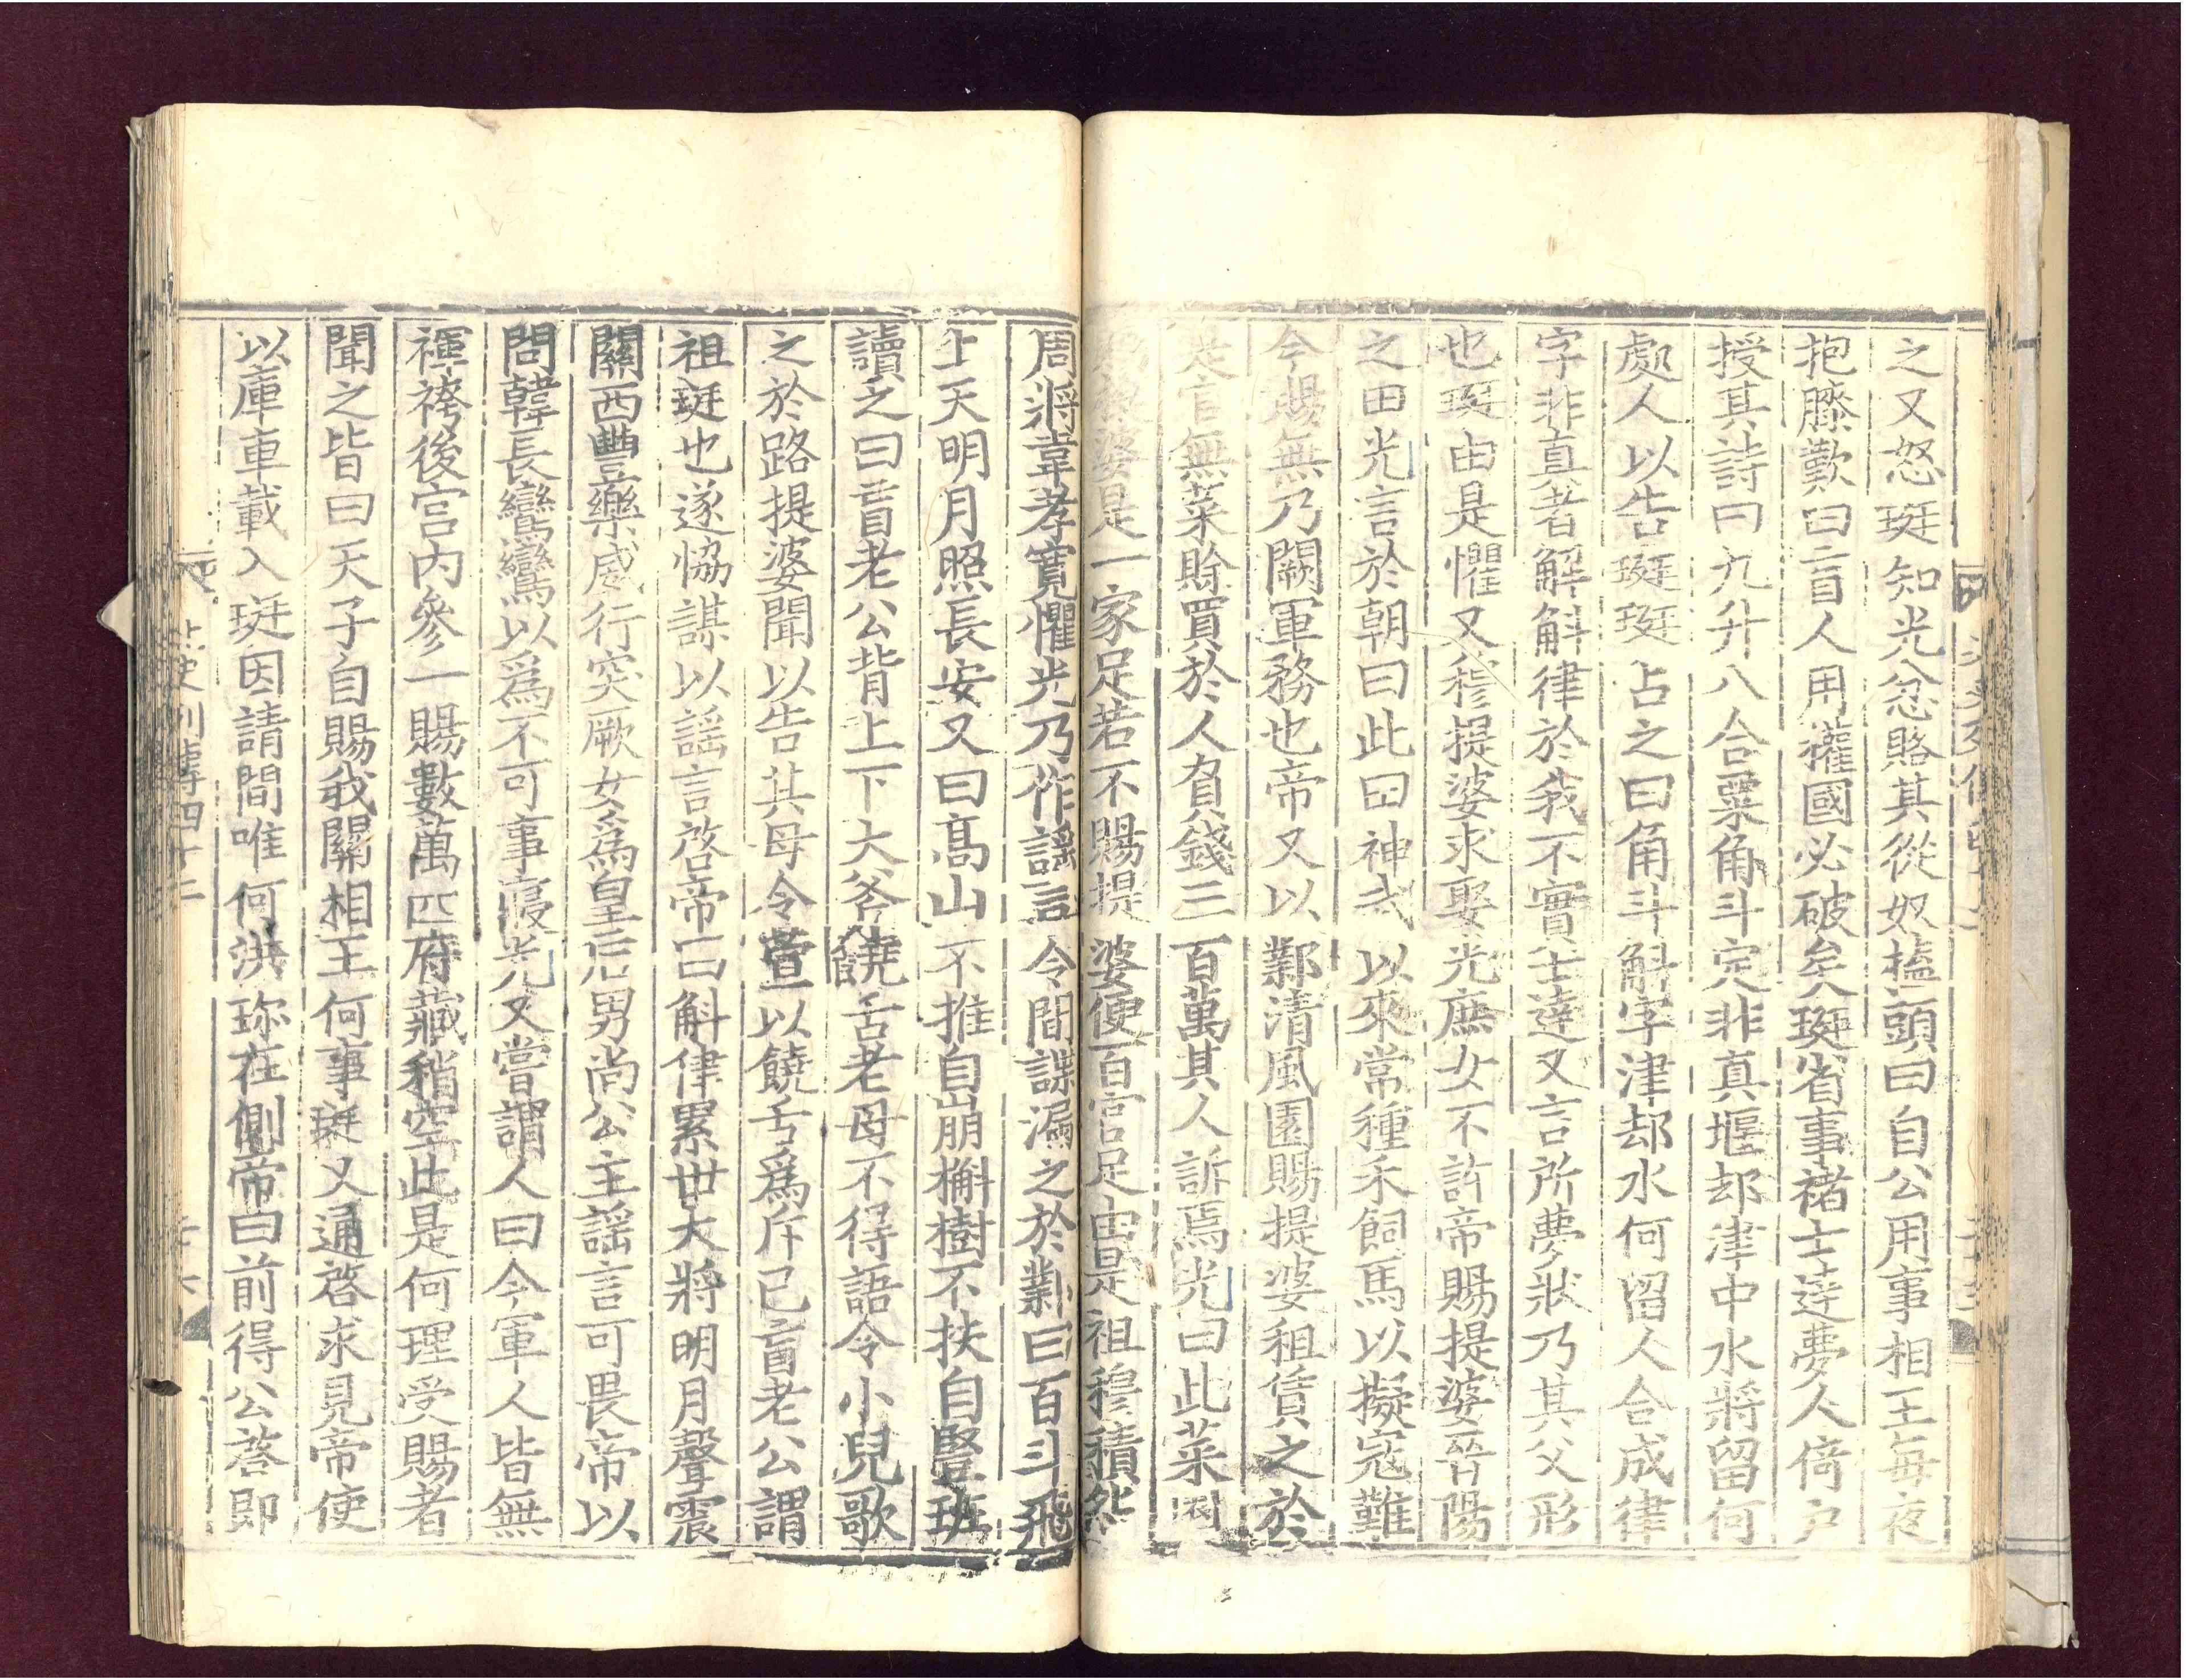 之又怒珽知光忿賂其從奴搕頭曰自公用事相王每夜
抱膝歎曰盲人用權國必破矣珽省事褚士逹夢人倚户
授其詩曰九升八合粟角斗定非真堰却津中水將留何
處人以告珽珽占之曰角斗斛字津却水何留人合成律
字非真者解斛律於我不實士逹又言所夢狀乃其父形
也珽由是懼又穆提婆求娶光庶女不許帝賜提婆晉陽
之田光言於朝曰此田神武以來常種禾飼馬以擬寇難
今賜無乃闕軍務也帝又以鄴清風園賜提婆租賃之於
是官無菜賒買於人負錢三百萬其人訴焉光曰此菜園
賜提婆是一家足若不賜提婆便百官足由是祖穆積怨
周將韋孝寛懼光乃作謡言令間諜漏之於鄴曰百斗飛
上天明月照長安又曰髙山不推自崩槲樹不扶自豎珽
讀之曰盲老公背上下大斧饒舌老母不得語令小兒歌
之於路提婆聞以告其母令萱以饒舌爲斥已盲老公謂
祖珽也遂恊謀以謡言啓帝曰斛律累世大將明月聲震
關西豐樂威行突厥女爲皇后男尚公主謡言可畏帝以
問韓長鸞鸞以爲不可事寢光又嘗謂人曰今軍人皆無
褌袴後宫内參一賜數萬匹府藏稍空此是何理受賜者
聞之皆曰天子自賜我關相王何事珽又通啓求見帝使
以庫車載入珽因請間唯何洪珍在側帝曰前得公啓即
北史列傳四十二